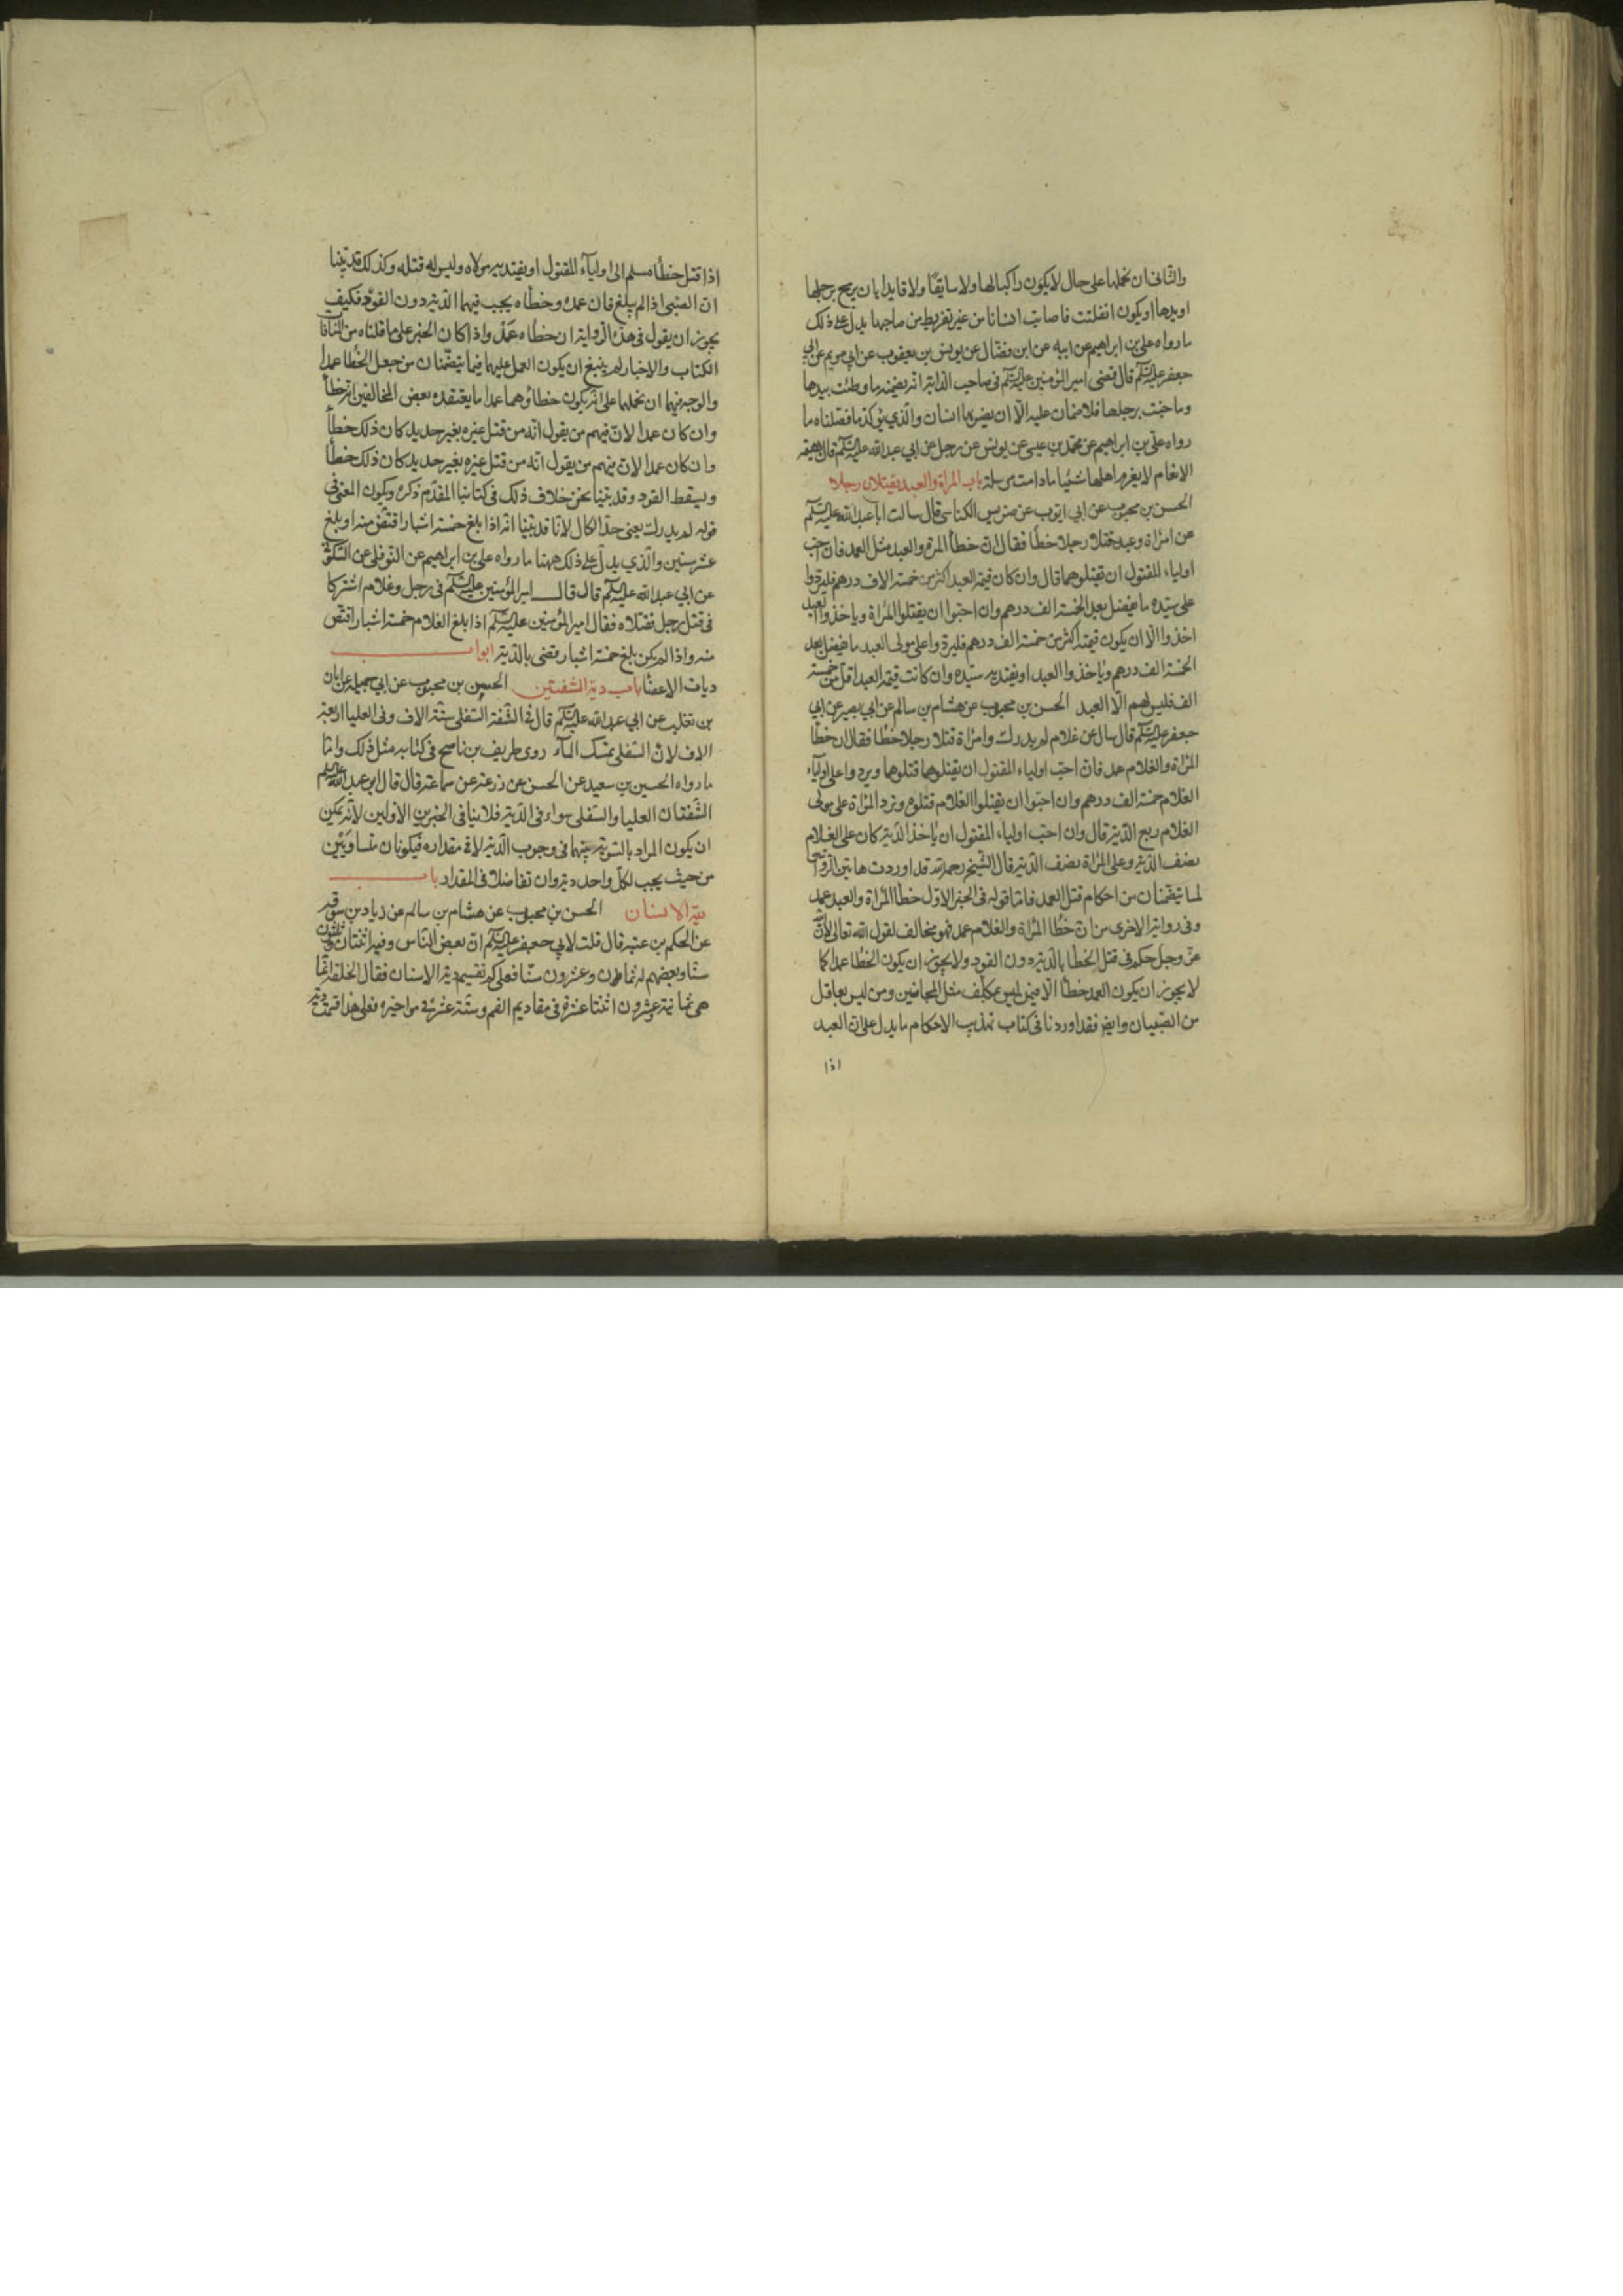 والثانى ان نحملها على حال لا يكون راكبا لها ولا سايقا ولا قايدا بان يرمح برجلها
او يدها او يكون انفلتت فاصابت انسانا من غير تفريط من صاحبها يدل على ذلك
ما رواه على بن ابراهيم عن ابيه عن ابن فضال عن يونس بن يعقوب عن ابي مريم عن ابي
جعفر عليه السلم قال قضى امير المؤمنين عليه السلم فى صاحب الدابة انه يضمنه ما وطئت بيدها
وما جنت برجلها فلا ضمان عليه الّا ان يضربها انسان والّذي يؤكد ما فصلناه ما
رواه علي بن ابراهيم عن محمد بن عيسى عن يونس عن رجل عن ابي عبد الله عليه السلم قال بهيمة
الانعام لا يغرم اهلها شيئا ما دامت مرسلة باب المراة والعبد يقتلان رجلا
الحسن بن محبوب عن ابي ايوب عن ضريس الكناسى قال سالت ابا عبد الله عليه السلم
عن امراة وعبد قتلا رجلا خطأ فقال ان خطأ المرة والعبد مثل العمد فان احب
اولياء المقتول ان يقتلوهما قال وان كان قيمة العبد اكثر من خمسة الاف درهم فليردوا
على سيده ما يفضل بعد الخمسة الف درهم وان احبّوا ان يقتلوا المراة وياخذوا العبد
اخذوا الّا ان يكون قيمته اكثر من خمسة الف درهم فليردوا على مولى العبد ما يفضل بعد
الخمسة الف درهم وياخذوا العبد او يفتديه سيّده وان كانت قيمة العبد اقل من خمسة
الف فليس لهم الّا العبد الحسن بن محبوب عن هشام بن سالم عن ابي بصير عن ابي
جعفر عليه السلم قال سال عن غلام لم يدرك وامراة قتلا رجلا خطا فقال ان خطأ
المراة والغلام عمد فان احبّ اولياء المقتول ان يقتلوهما قتلوهما ويردوا على اولياء
الغلام خمسة الف درهم وان احبّوا ان يقتلوا الغلام قتلوه وترد المراة على مولى
الغلام ربع الدّية قال وان احبّ اولياء المقتول ان ياخذ الدّية كان على الغلام
نصف الدّية وعلى المراة نصف الدّية قال الشّيخ رحمه الله قد اوردت هاتين الروايتين
لما يتضمنان من احكام قتل العمد فامّا قوله فى الخبر الاول خطأ المراة والعبد عمد
وفى رواية الاخرى من ان خطأ المراة والغلام عمد فهو مخالف لقول الله تعالى لان الله
عزّ وجلّ حكم فى قتل الخطأ بالدّية دون القود ولا يجوز ان يكون الخطا عمدا كما
لا يجوز ان يكون العمد خطأ الّا فيمن ليس بمكلّف مثل المجانين ومن ليس بعاقل
من الصّبيان وايضا فقد اوردنا فى كتاب تهذيب الاحكام ما يدل على ان العبد
اذا
اذا قتل خطأ سلم الى اولياء المقتول او يفتديه مولاه وليس له قتله وكذلك قد بيّنا
ان الصّبى اذا لم يبلغ فان عمده وخطأه يجب فيهما الدّية دون القود فكيف
يجوز ان يقول فى هذه الرّواية ان خطأه عمد واذا كان الخبر على ما قلناه من المنافاة
الكتاب والاخبار لم ينبغ ان يكون العمل عليهما فيما يتضمّنان من جعل الخطأ عمدا
والوجه فيهما ان نحملها على انّه يكون خطأوهما عمدا ما يعتقده بعض المخالفين انه خطأ
وان كان عمدا لانّ فيهم من يقول انّه من قتل غيره بغير حديد كان ذلك خطأ
وان كان عمدا لانّ منهم من يقول انّه من قتل غيره بغير حديد كان ذلك خطأ
ويسقط القود وقد بيّنا نحن خلاف ذلك فى كتابنا المقدّم ذكره ويكون المعنى فى
قوله لم يدرك يعنى حدّ الكمال لانّا قد بيّنا انّه اذا بلغ خمسة اشبار اقتصّ منه او بلغ
عشر سنين والّذي يدلّ على ذلك ههنا ما رواه على بن ابراهيم عن النّوفلى عن السّكونى
عن ابي عبد الله عليه السلم قال قال امير المؤمنين عليه السلم فى رجل وغلام اشتركا
فى قتل رجل فقتلاه فقال امير المؤمنين عليه السلم اذا بلغ الغلام خمسة اشبار اقتصّ
منه واذا لم يكن بلغ خمسة اشبار قضى بالدّية ابواب
ديات الاعضا باب دية الشّفتين الحسن بن محبوب عن ابي جميلة عن ابان
بن تغلب عن ابي عبد الله عليه السلم قال فى الشّفة السّفلى ستّة الاف وفى العليا اربعة
الاف لانّ السّفلى تمسك المآء روى ظريف بن ناصح فى كتابه مثل ذلك وامّا
ما رواه الحسين بن سعيد عن الحسن عن زرعة عن سماعة قال قال ابو عبد الله عليه السلم
الشّفتان العليا والسّفلى سواء فى الدّية فلا ينافى الخبرين الاولين لانّه يمكن
ان يكون المراد بالتسوية بينهما فى وجوب الدّية لا فى مقداره فيكونان متساويين
من حيث يجب لكلّ واحد دية وان تفاضلا فى المقدار باب
دية الاسنان الحسن بن محبوب عن هشام بن سالم عن زياد بن سوقه
عن الحكم بن عتيبة قال قلت لابي جعفر عليه السلم انّ بعض النّاس وفيه اثنتان وثلثون
سنّا وبعضهم له ثمان وعشرون سنّا فعلى كم تقسيم دية الاسنان فقال الخلقة انّما
هى ثمانية وعشرون اثنتا عشرة فى مقاديم الفم وستّة عشرة فى مواخيره فعلى هذا قسمت دية